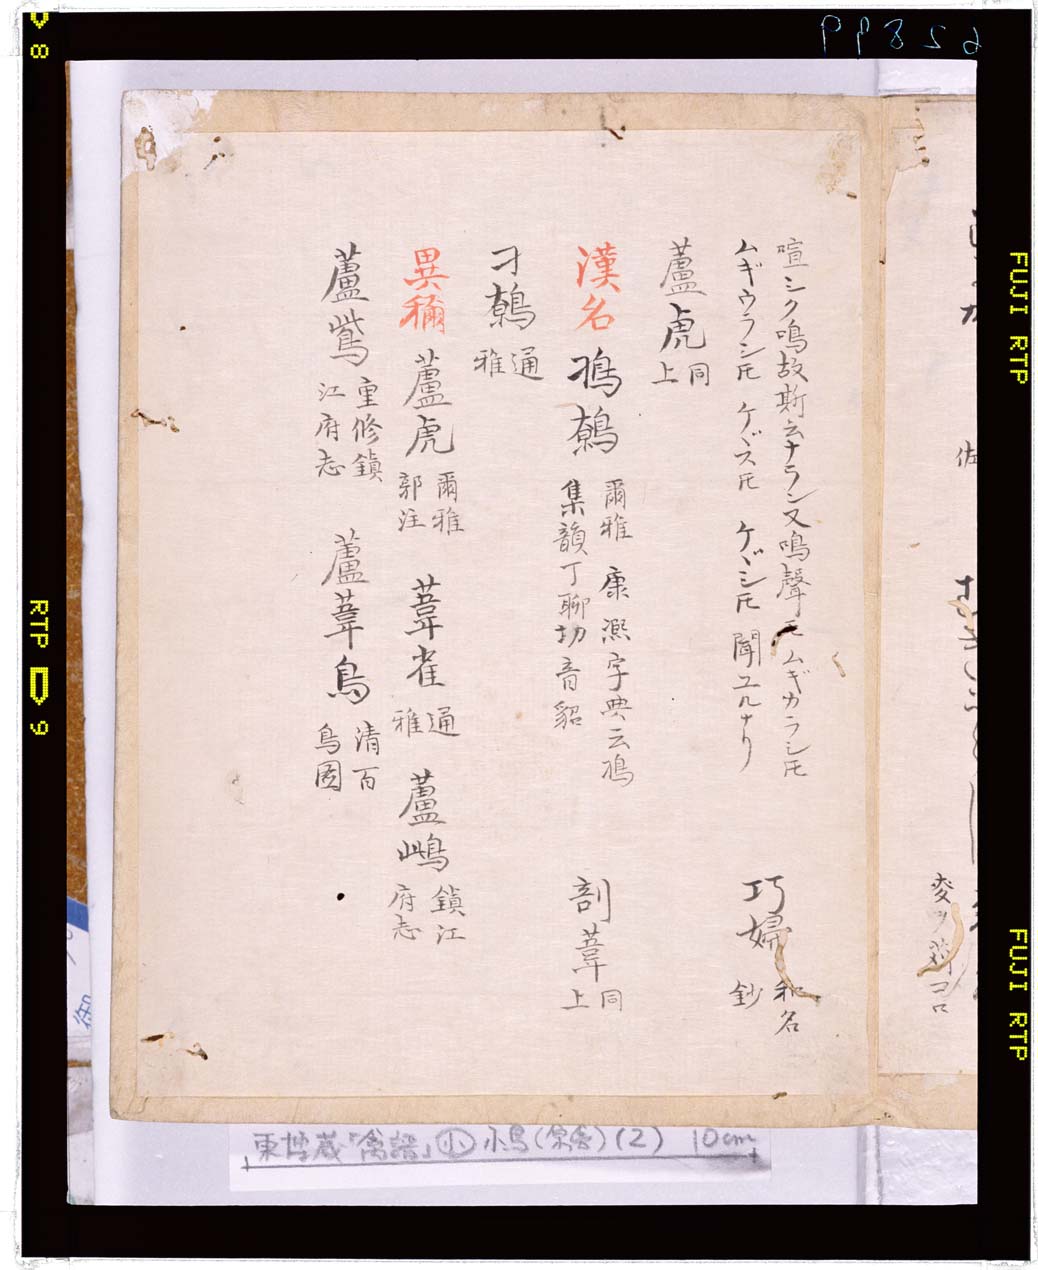 喧シク鳴故斯云ナラン又鳴聲モムギカラシ㐂
ムギウラシ㐂 ケヾス㐂 ケヾシ㐂 聞ユルナリ
巧婦 和名
鈔
蘆虎 同
上
漢名 鳭鷯 爾雅 康熙字典云鳭
集韻丁聊切音貂
剖葦 同
上
刁鷯 通
雅
異稱 蘆虎 爾雅
郭注
葦雀 通
雅
蘆鴜 鎮江
府志
蘆鴜 重修鎮
江府志
蘆葦鳥 清百
鳥圖
佐
麥ヲ コロ
東博蔵「禽譜」小 小鳥 (2) 10cm
FUJI RTP
FUJI RTP
RTP D 9
8